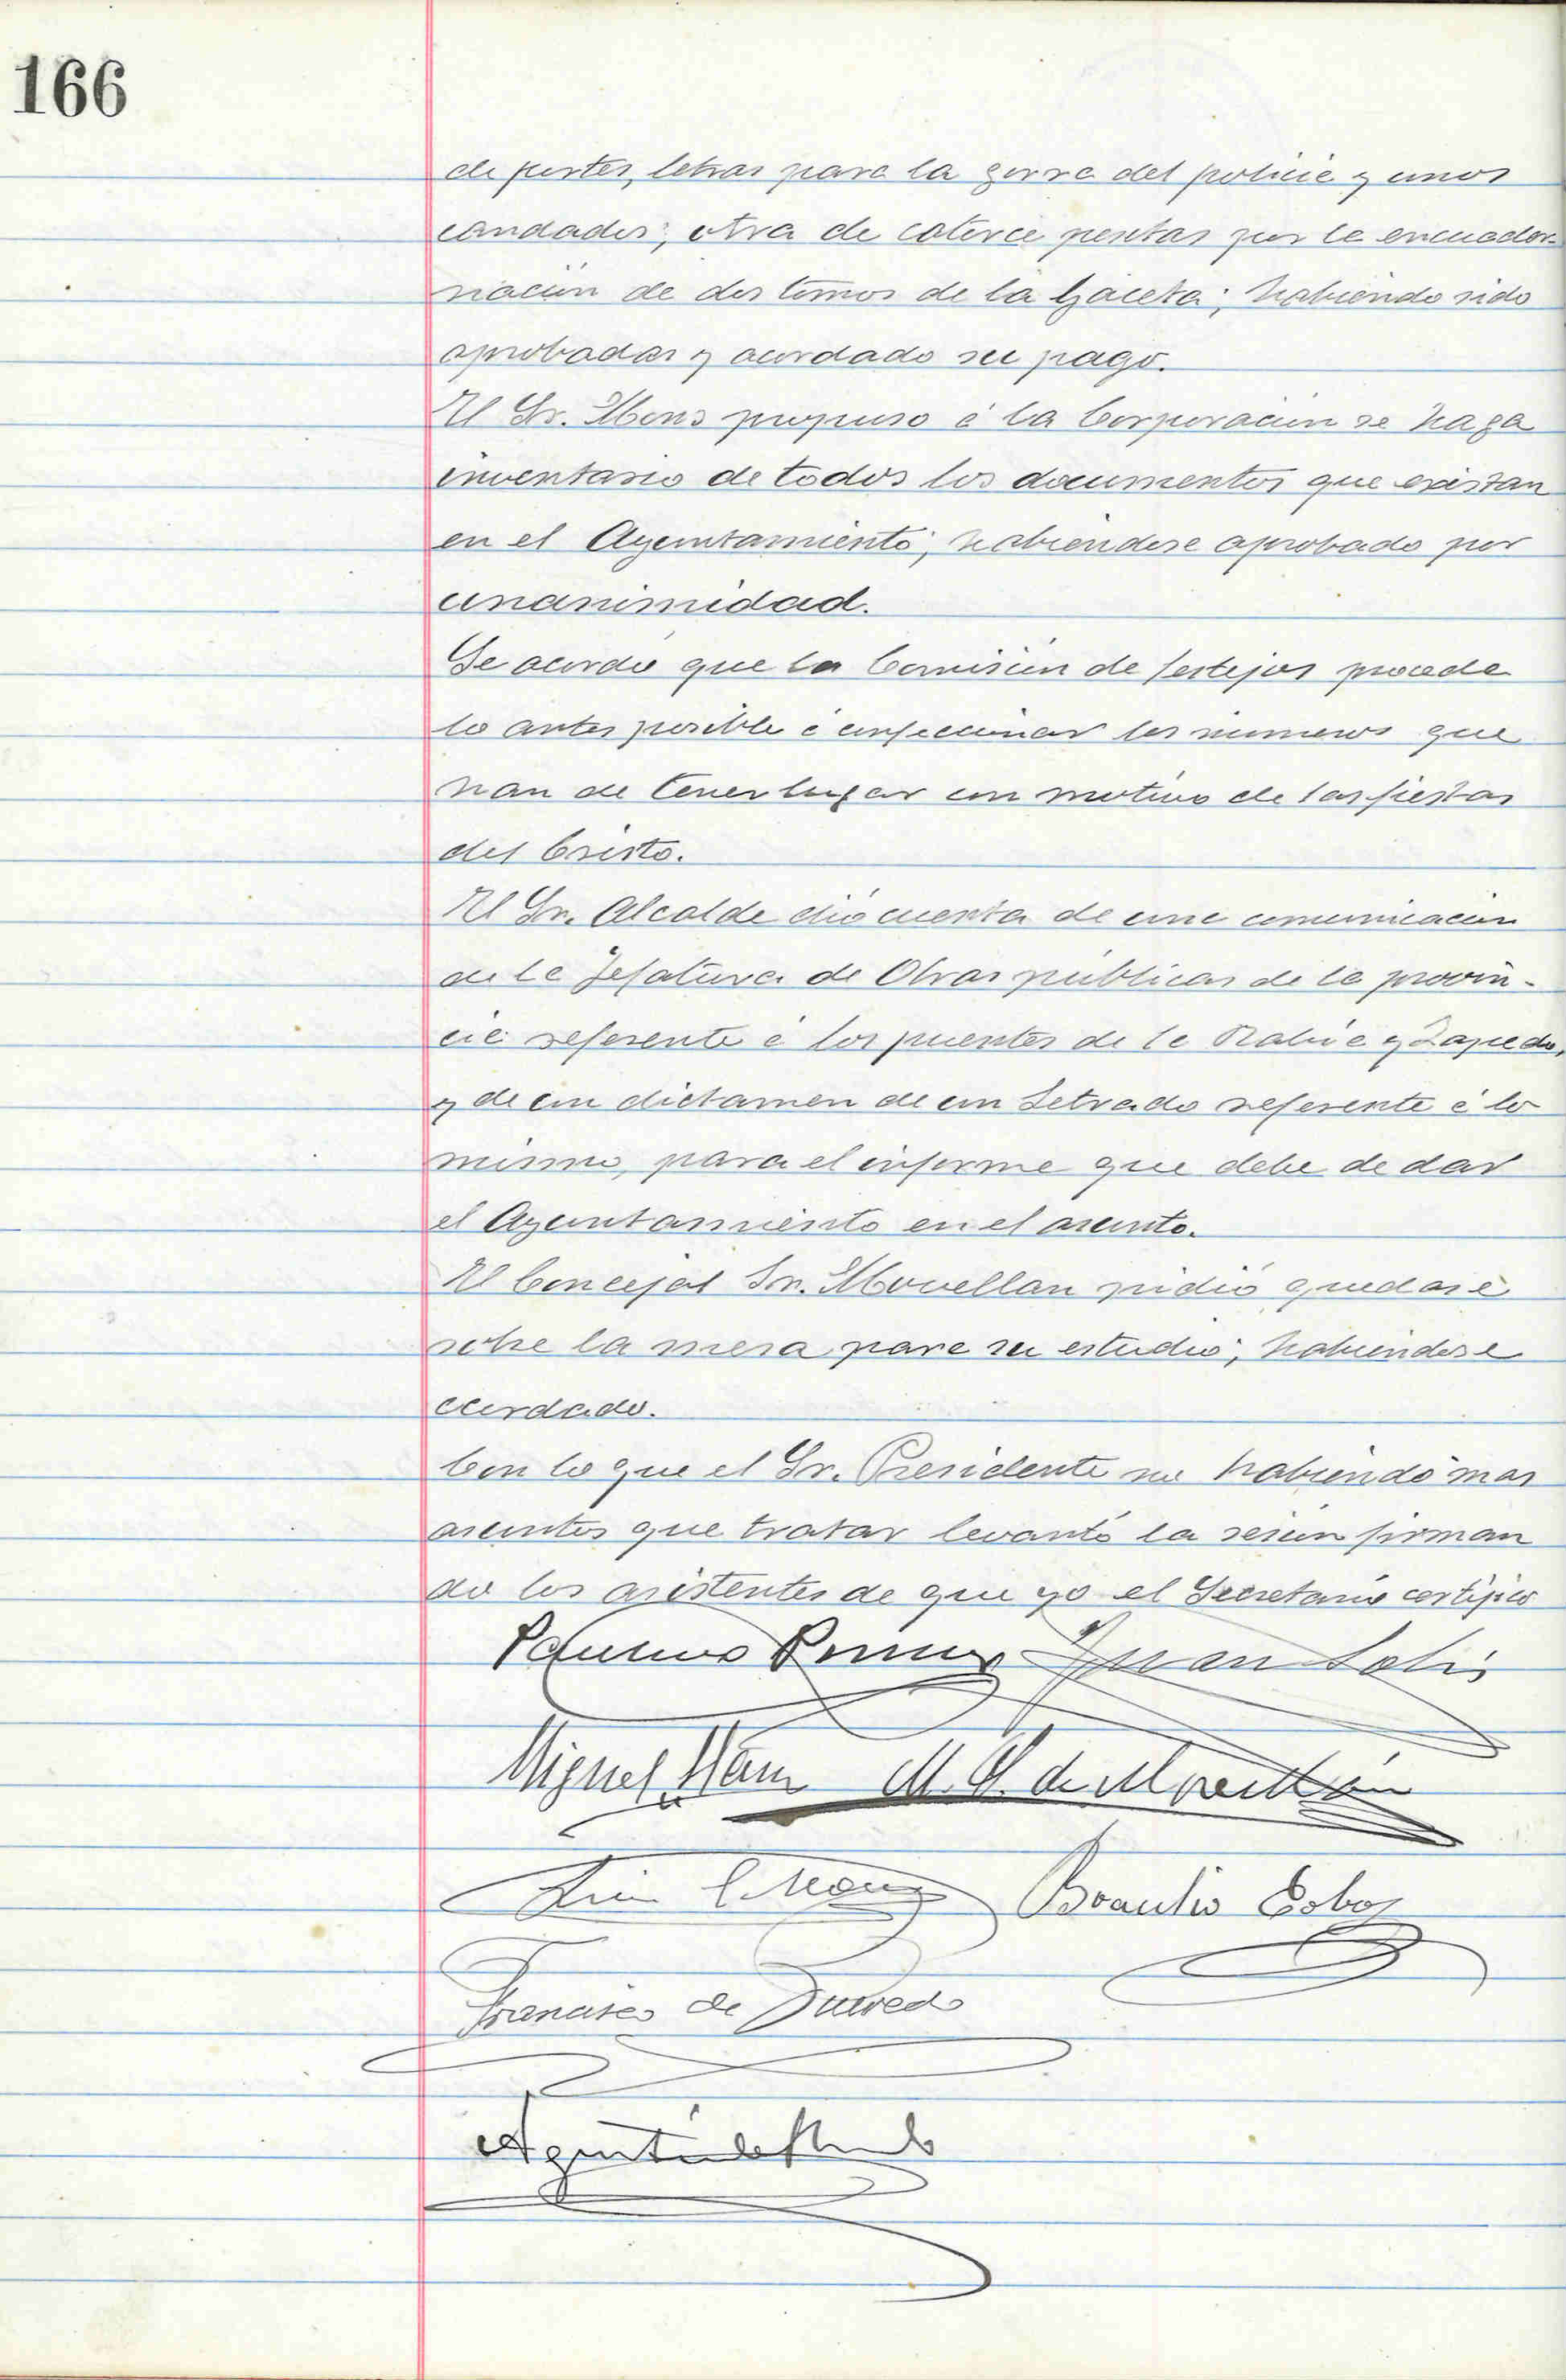 166
de portes, letras para la gorra del policia y unos
candados; otra de catorce pesetas por la encuader-
nación de dos tomos de la Gaceta; habiendo sido
aprobadas y acordado su pago.
El Sr. Mons propuso á la Corporación se haga
inventario de todos los documentos que existan
en el Ayuntamiento; habiendose aprobado por
unanimidad.
Se acordó que la Comisión de festejos proceda
lo antes posible á confeccionar los números que
han de tener lugar con motivo de las fiestas
del Cristo.
El Sr. Alcalde dió cuenta de una comunicación
de la Jefatura de Obras públicas de la provin-
cia referente á los puentes de la Rabia y Zapedo,
y de un dictamen de un Letrado referente á lo
mismo, para el informe que debe de dar
el Ayuntamiento en el asunto.
El Concejal Sr. Movellan pidió quedase
sobre la mesa para su estudio; habiendose
acordado.
Con lo que el Sr. Presidente no habiendo mas
asuntos que tratar levantó la sesión firman
do los asistentes de que yo el Secretario certifico
Juan Solis
Miguel M. de Movellán
Braulio Cobos
Francisco de Quevedo
Agustín de